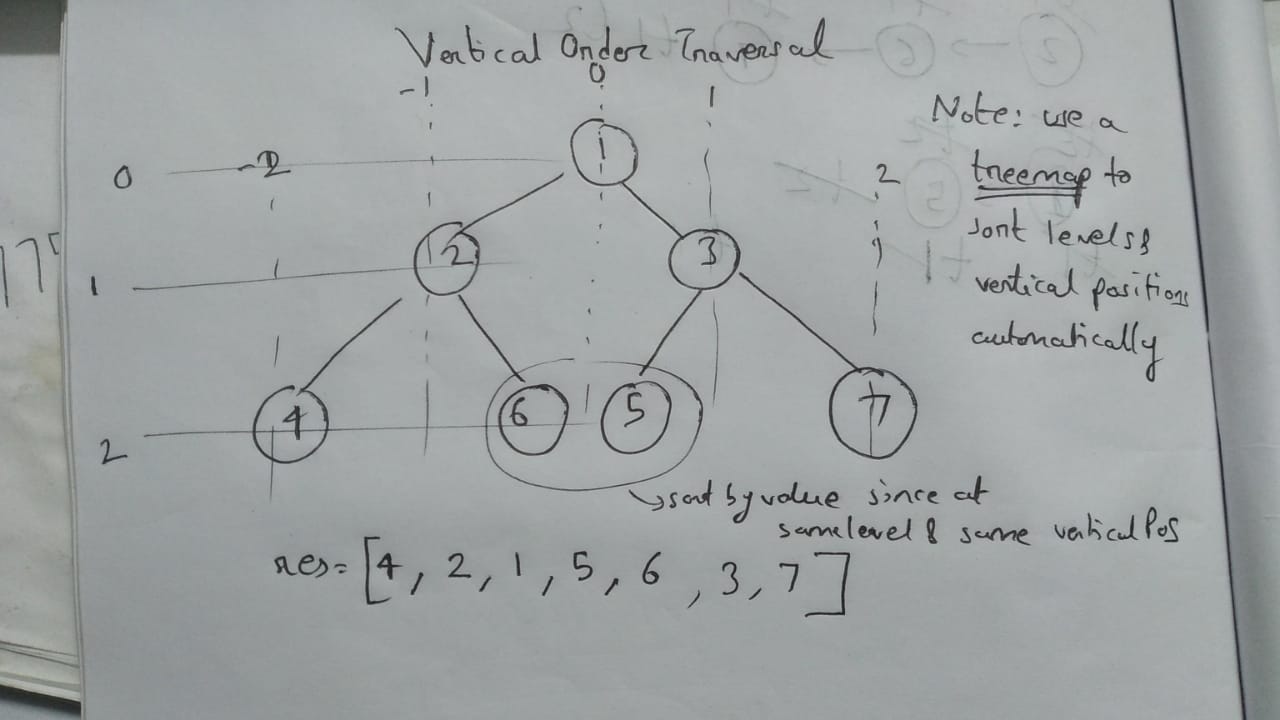 Vertical Order Traversal
-1 0 1
Note: use a
treemap to
sort levels &
vertical positions
automatically
0 -2 1 2
1 2 3
2 4 6 5 7
sort by value since at
same level & same vertical Pos
res= [4, 2, 1, 5, 6, 3, 7]